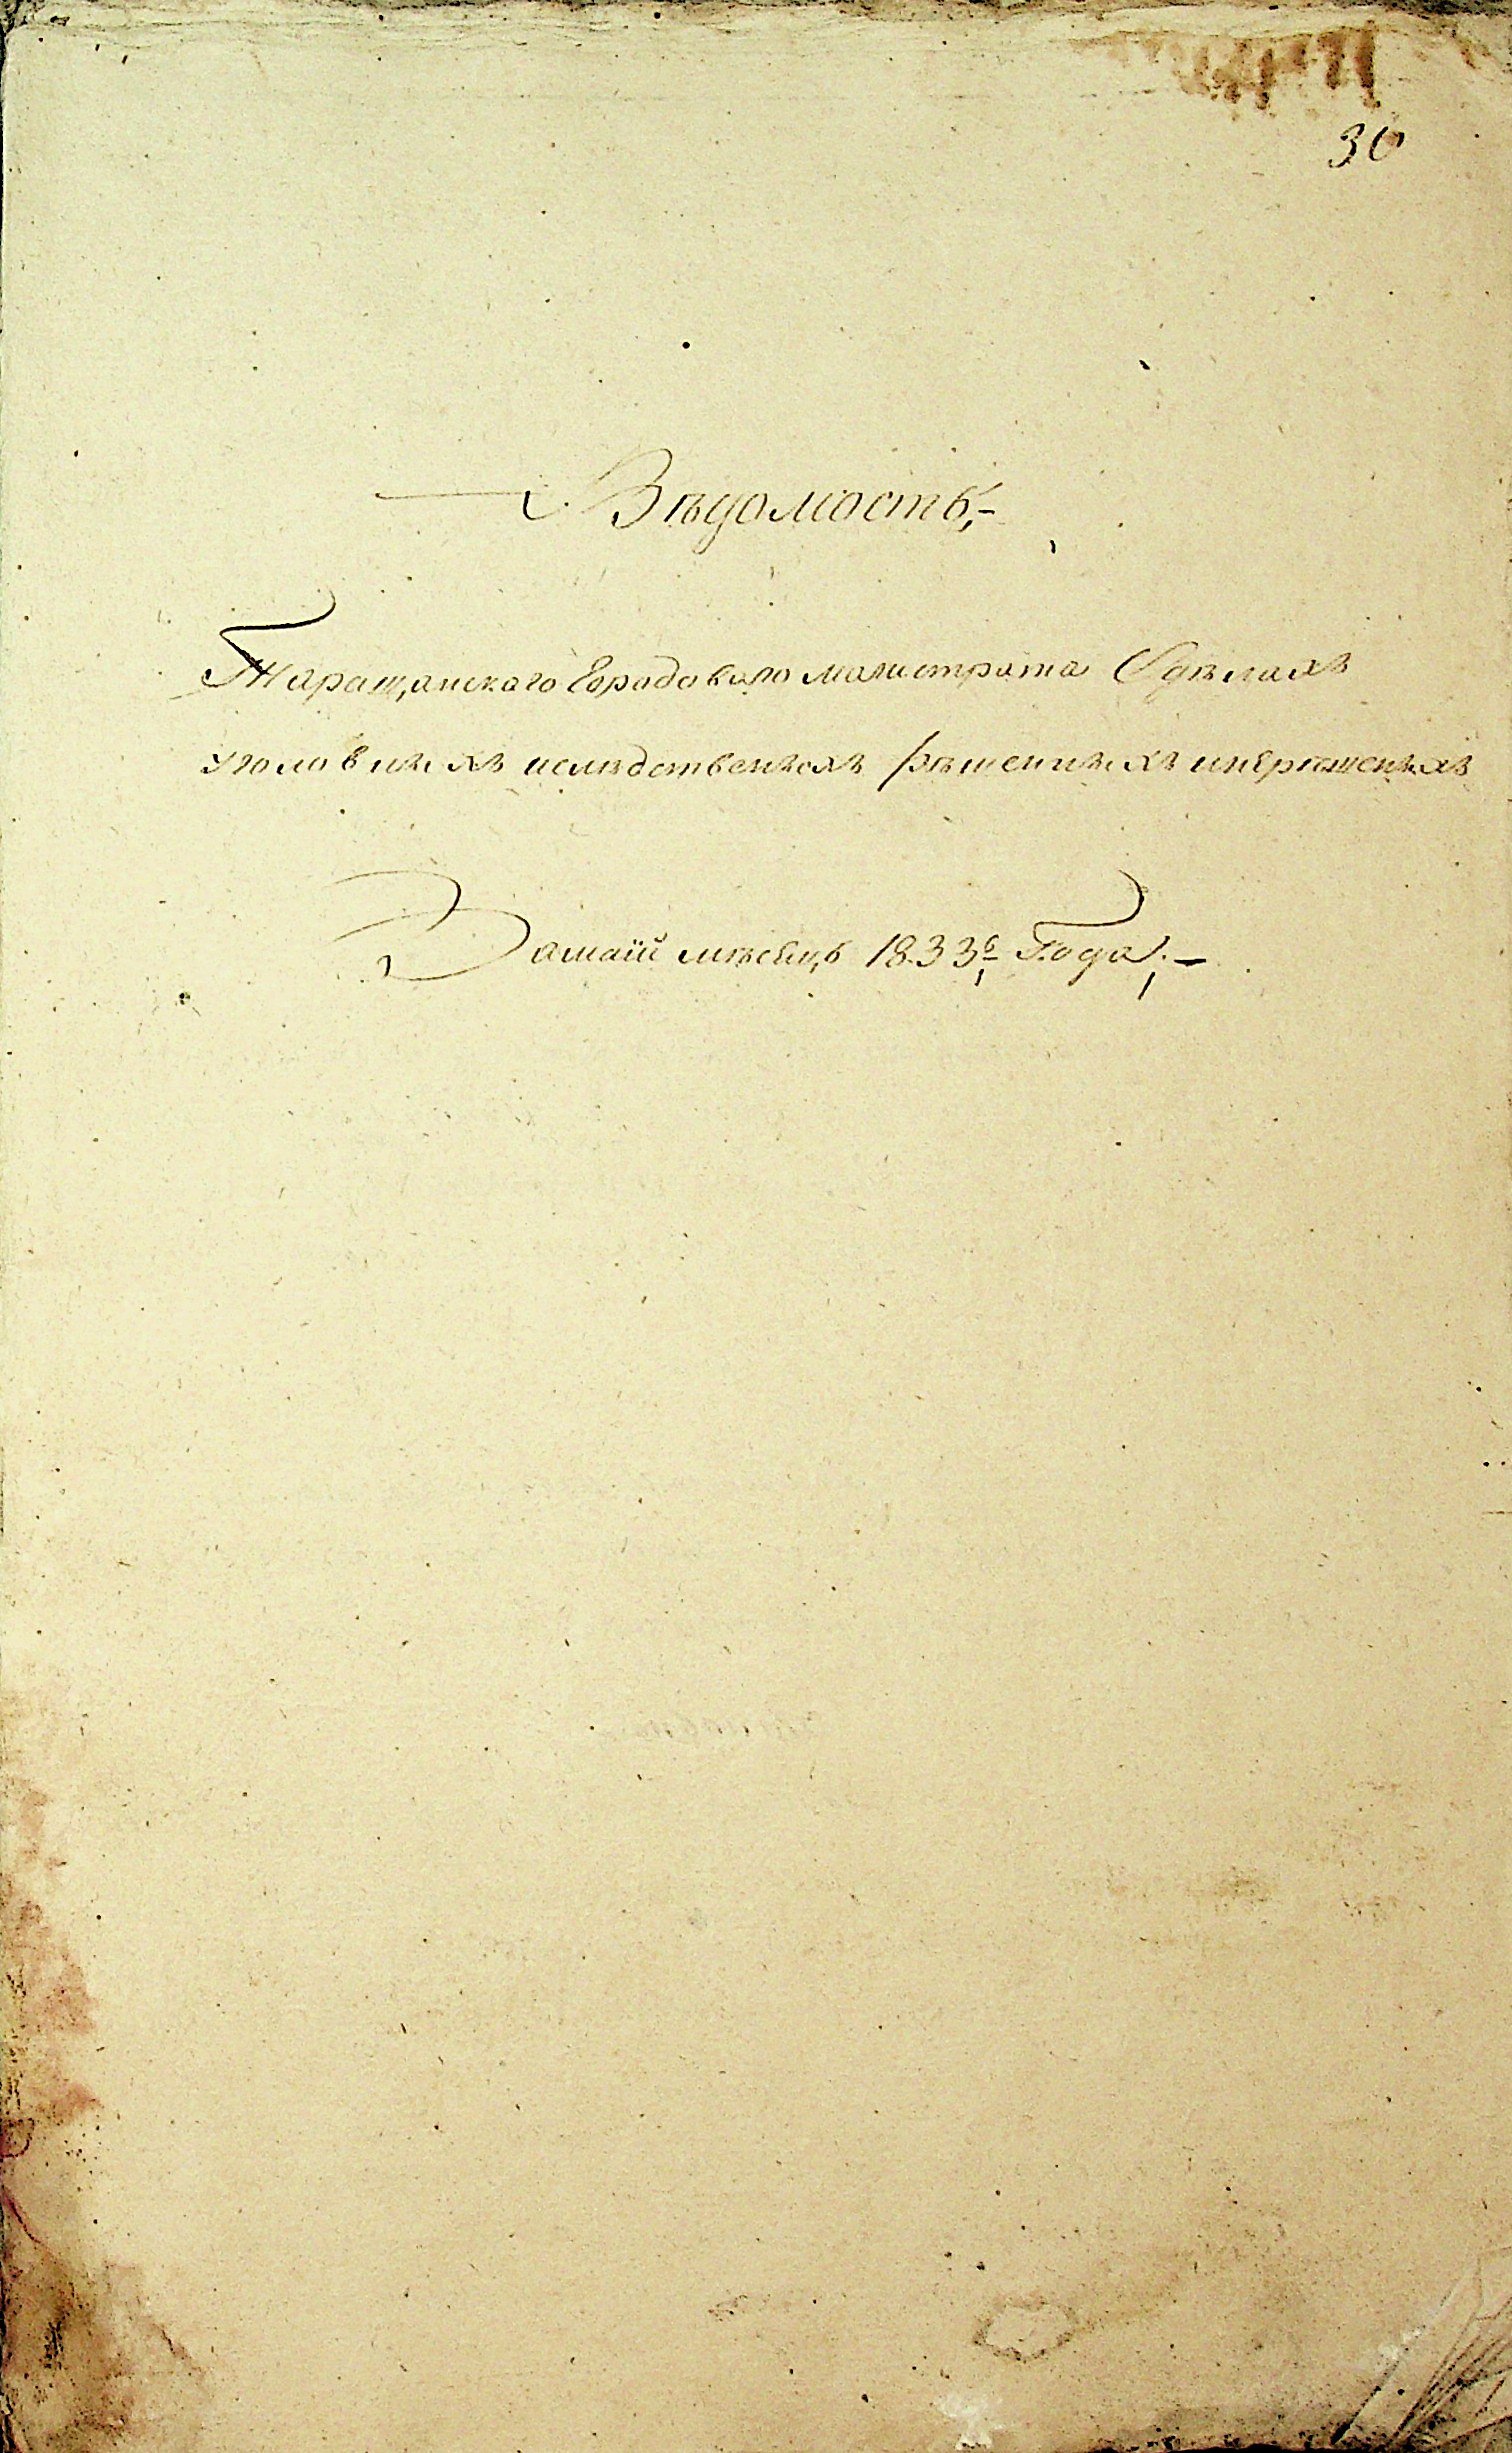 30
Вѣдомость,-
Таращанского Городоваго магистрата Одѣлахъ
уголовныхъ ислѣдственыхъ рѣшеныхъ инерѣшеныхъ
Замаій мѣсецъ 1833го Года;-